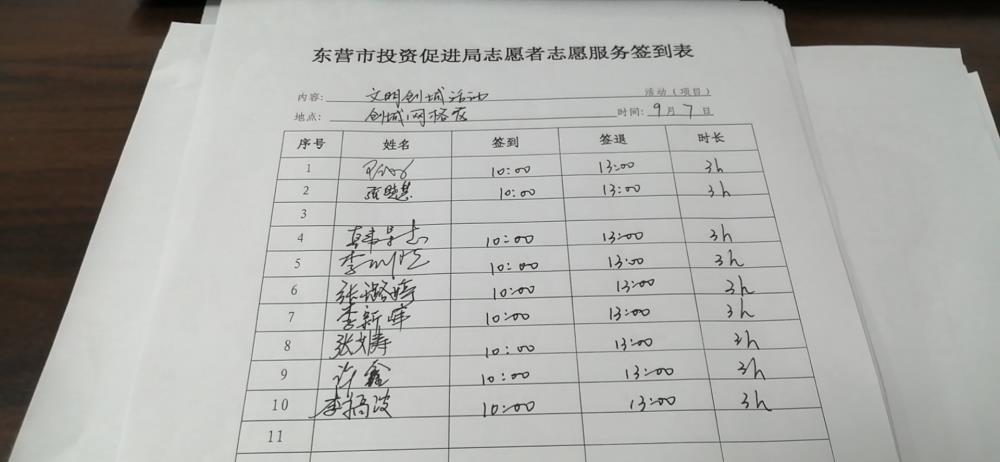 东营市投资促进局志愿者志愿服务签到表
内容: 文明创城活动 活动（项目）
地点: 创城网格区 时间: 9月7日
序号 姓名 签到 签退 时长
1 10:00 13:00 3h
2 10:00 13:00 3h
3
4 10:00 13:00 3h
5 李 10:00 13:00 3h
6 张璐婷 10:00 13:00 3h
7 李新峰 10:00 13:00 3h
8 张文涛 10:00 13:00 3h
9 许鑫 10:00 13:00 3h
10 李 波 10:00 13:00 3h
11